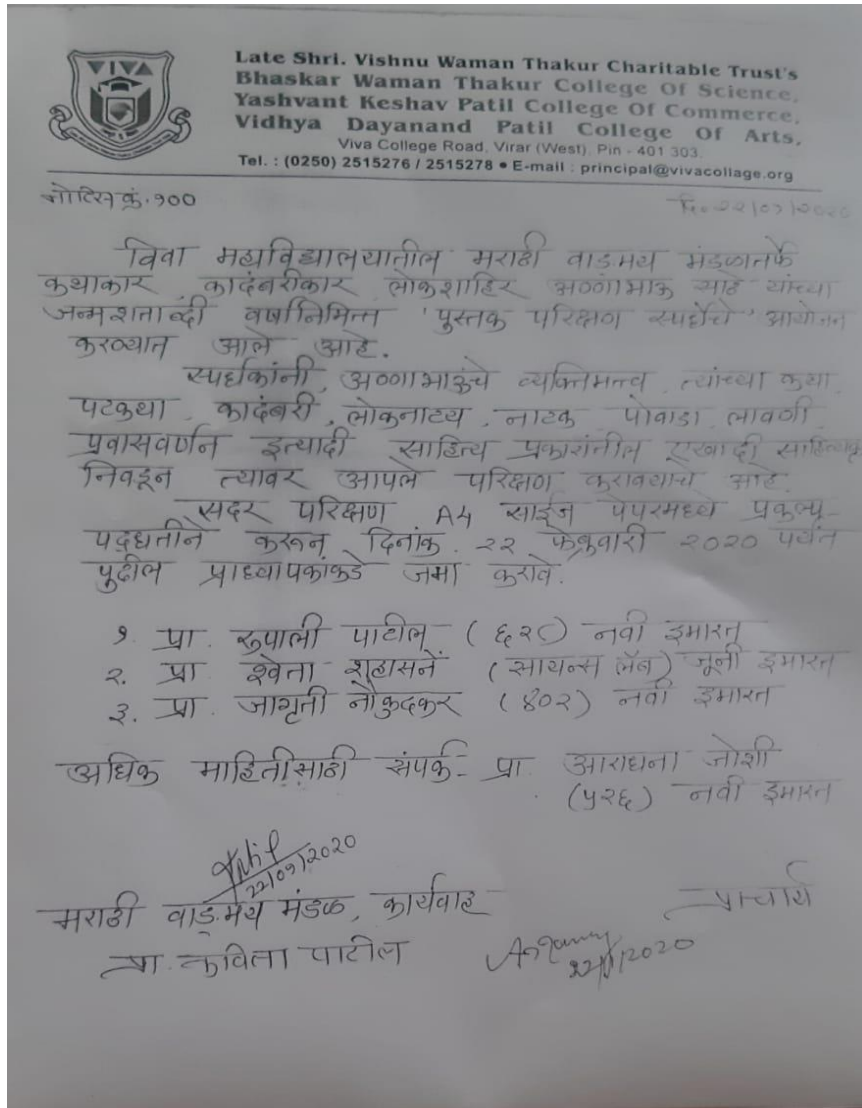 VIVA
Late Shri. Vishnu Waman Thakur Charitable Trust's
Bhaskar Waman Thakur College Of Science,
Yashvant Keshav Patil College Of Commerce,
Vidhya Dayanand Patil College Of Arts,
Viva College Road, Virar (West), Pin - 401 303.
Tel. : (0250) 2515276 / 2515278 • E-mail : principal@vivacollage.org
नोटिस क्रं. १००
दि. २२/०१/२०२०
विवा महाविद्यालयातील मराठी वाङ्मय मंडळातर्फे
कथाकार, कादंबरीकार, लोकशाहिर अण्णाभाऊ साठे यांच्या
जन्मशताब्दी वर्षानिमित्त 'पुस्तक परिक्षण स्पर्धेचे' आयोजन
करण्यात आले आहे.
स्पर्धकांनी, अण्णाभाऊंचे व्यक्तिमत्त्व, त्यांच्या कथा,
पटकथा, कादंबरी, लोकनाट्य, नाटक, पोवाडा, लावणी,
प्रवासवर्णन इत्यादी साहित्य प्रकारांतील एखादी
निवडून त्यावर आपले परिक्षण करावयाचे आहे.
सदर परिक्षण A4 साईज पेपरमध्ये प्रकल्प
पद्धतीने करून दिनांक. २२ फेब्रुवारी २०२० पर्यंत
पुढील प्राध्यापकांकडे जमा करावे.
१. प्रा. रुपाली पाटील (६२८) नवी इमारत
२. प्रा श्वेता (सायन्स लॅब) जूनी इमारत
३. प्रा. जागृती नौकुदकर (४०२) नवी इमारत
अधिक माहितीसाठी संपर्क- प्रा. आराधना जोशी
(५२६) नवी इमारत
22/01/2020
मराठी वाङ्मय मंडळ, कार्यवाह
प्राचार्य
प्रा. कविता पाटील
22/1/2020